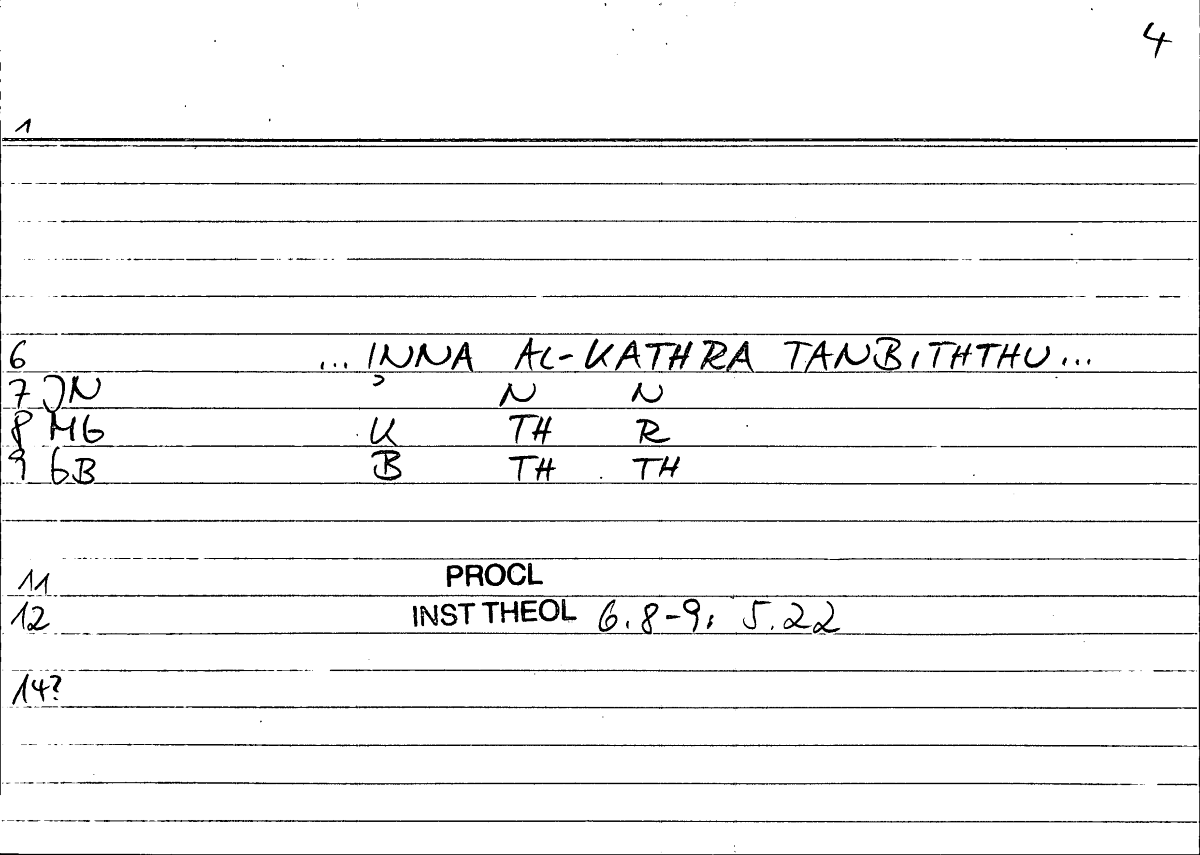 4
1
6 ... INNA AL-KATHRA TANBITHTHU...
7 JN ʾ N N
8 MG K TH R
9 GB B TH TH
11 PROCL
12 INST THEOL 6.8-9; 5.22
14?